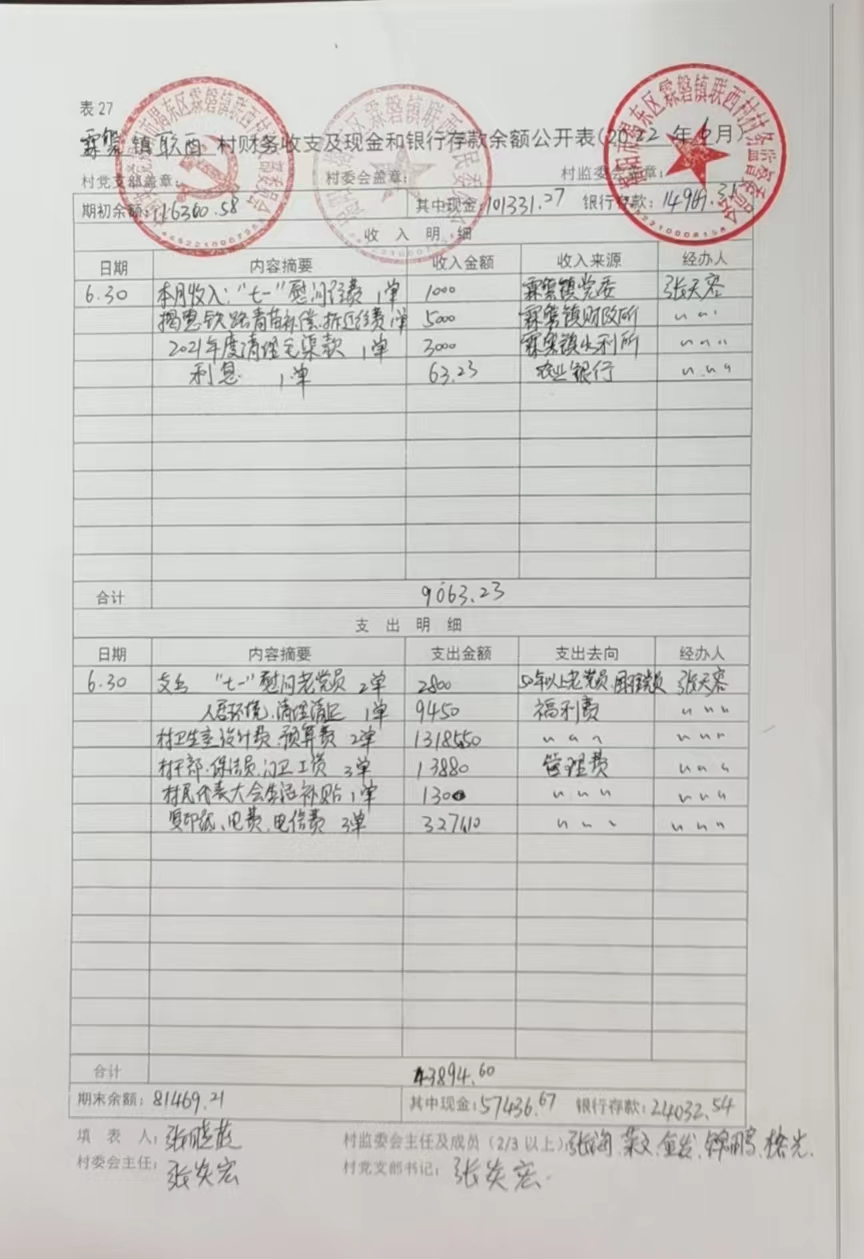 表27
霖磐镇联西村财务收支及现金和银行存款余额公开表(2022年6月)
村党支部盖章: 村委会盖章: 村监委会盖章:
期初余额:116300.58 其中现金:101331.27 银行存款:14969.31
收入明细
日期 内容摘要 收入金额 收入来源 经办人
6.30 本月收入:"七一"慰问经费 1单 1000 霖磐镇党委 张天容
揭惠铁路青苗补偿、拆迁经费1单 5000 霖磐镇财政所 〃〃〃
2021年度清理毛渠款 1单 3000 霖磐镇水利所 〃〃〃
利息 1单 63.23 农业银行 〃〃〃
合计 9063.23
支出明细
日期 内容摘要 支出金额 支出去向 经办人
6.30 支出 "七一"慰问老党员 2单 2800 50年以上老党员、困难党员 张天容
人居环境、清理清运 1单 9450 福利费 〃〃〃
村卫生室设计费、预算费 2单 13185.50 〃〃〃 〃〃〃
村干部、保洁员、门卫工资 3单 13880 管理费 〃〃〃
村民代表大会生活补贴 1单 1300 〃〃〃 〃〃〃
复印纸、电费、电信费 3单 3274.10 〃〃〃 〃〃〃
合计 43894.60
期末余额:81469.21 其中现金:57436.67 银行存款:24032.54
填表人: 村监委会主任及成员(2/3以上):张海
村委会主任:张炎宏 村党支部书记:张炎宏